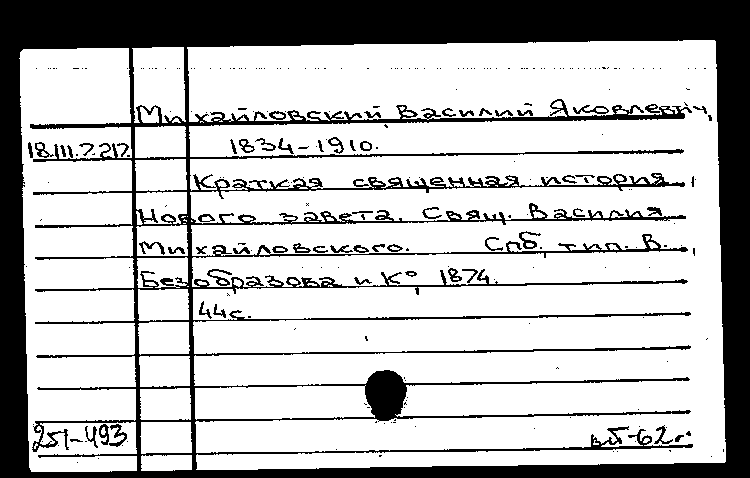 Михайловский, Василий Яковлевич,
18.III.7.217. 1834-1910.
Краткая священная история
Нового завета. Свящ. Василия
Михайловского. Спб, тип. В.
Безобразова и К°, 1874.
44с.
251-493 вБ-62г.